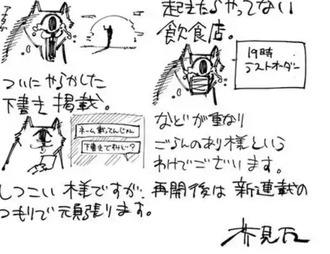 起きたらやってない
飲食店。
19時
ラストオーダー
ついにやらかした
下書き掲載。
ネーム載ってんじゃん
下書き
などが重なり
ごらんのあり様という
わけでございます。
しつこい様ですが、再開後は新連載の
つもりで頑張ります。
芥見下々